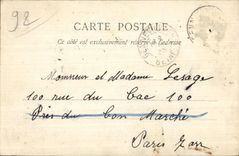 92
CARTE POSTALE
Ce côté est exclusivement réservé à l'adresse
Monsieur et Madame Lesage
100 rue du Bac 100
Près du Bon Marché
Paris